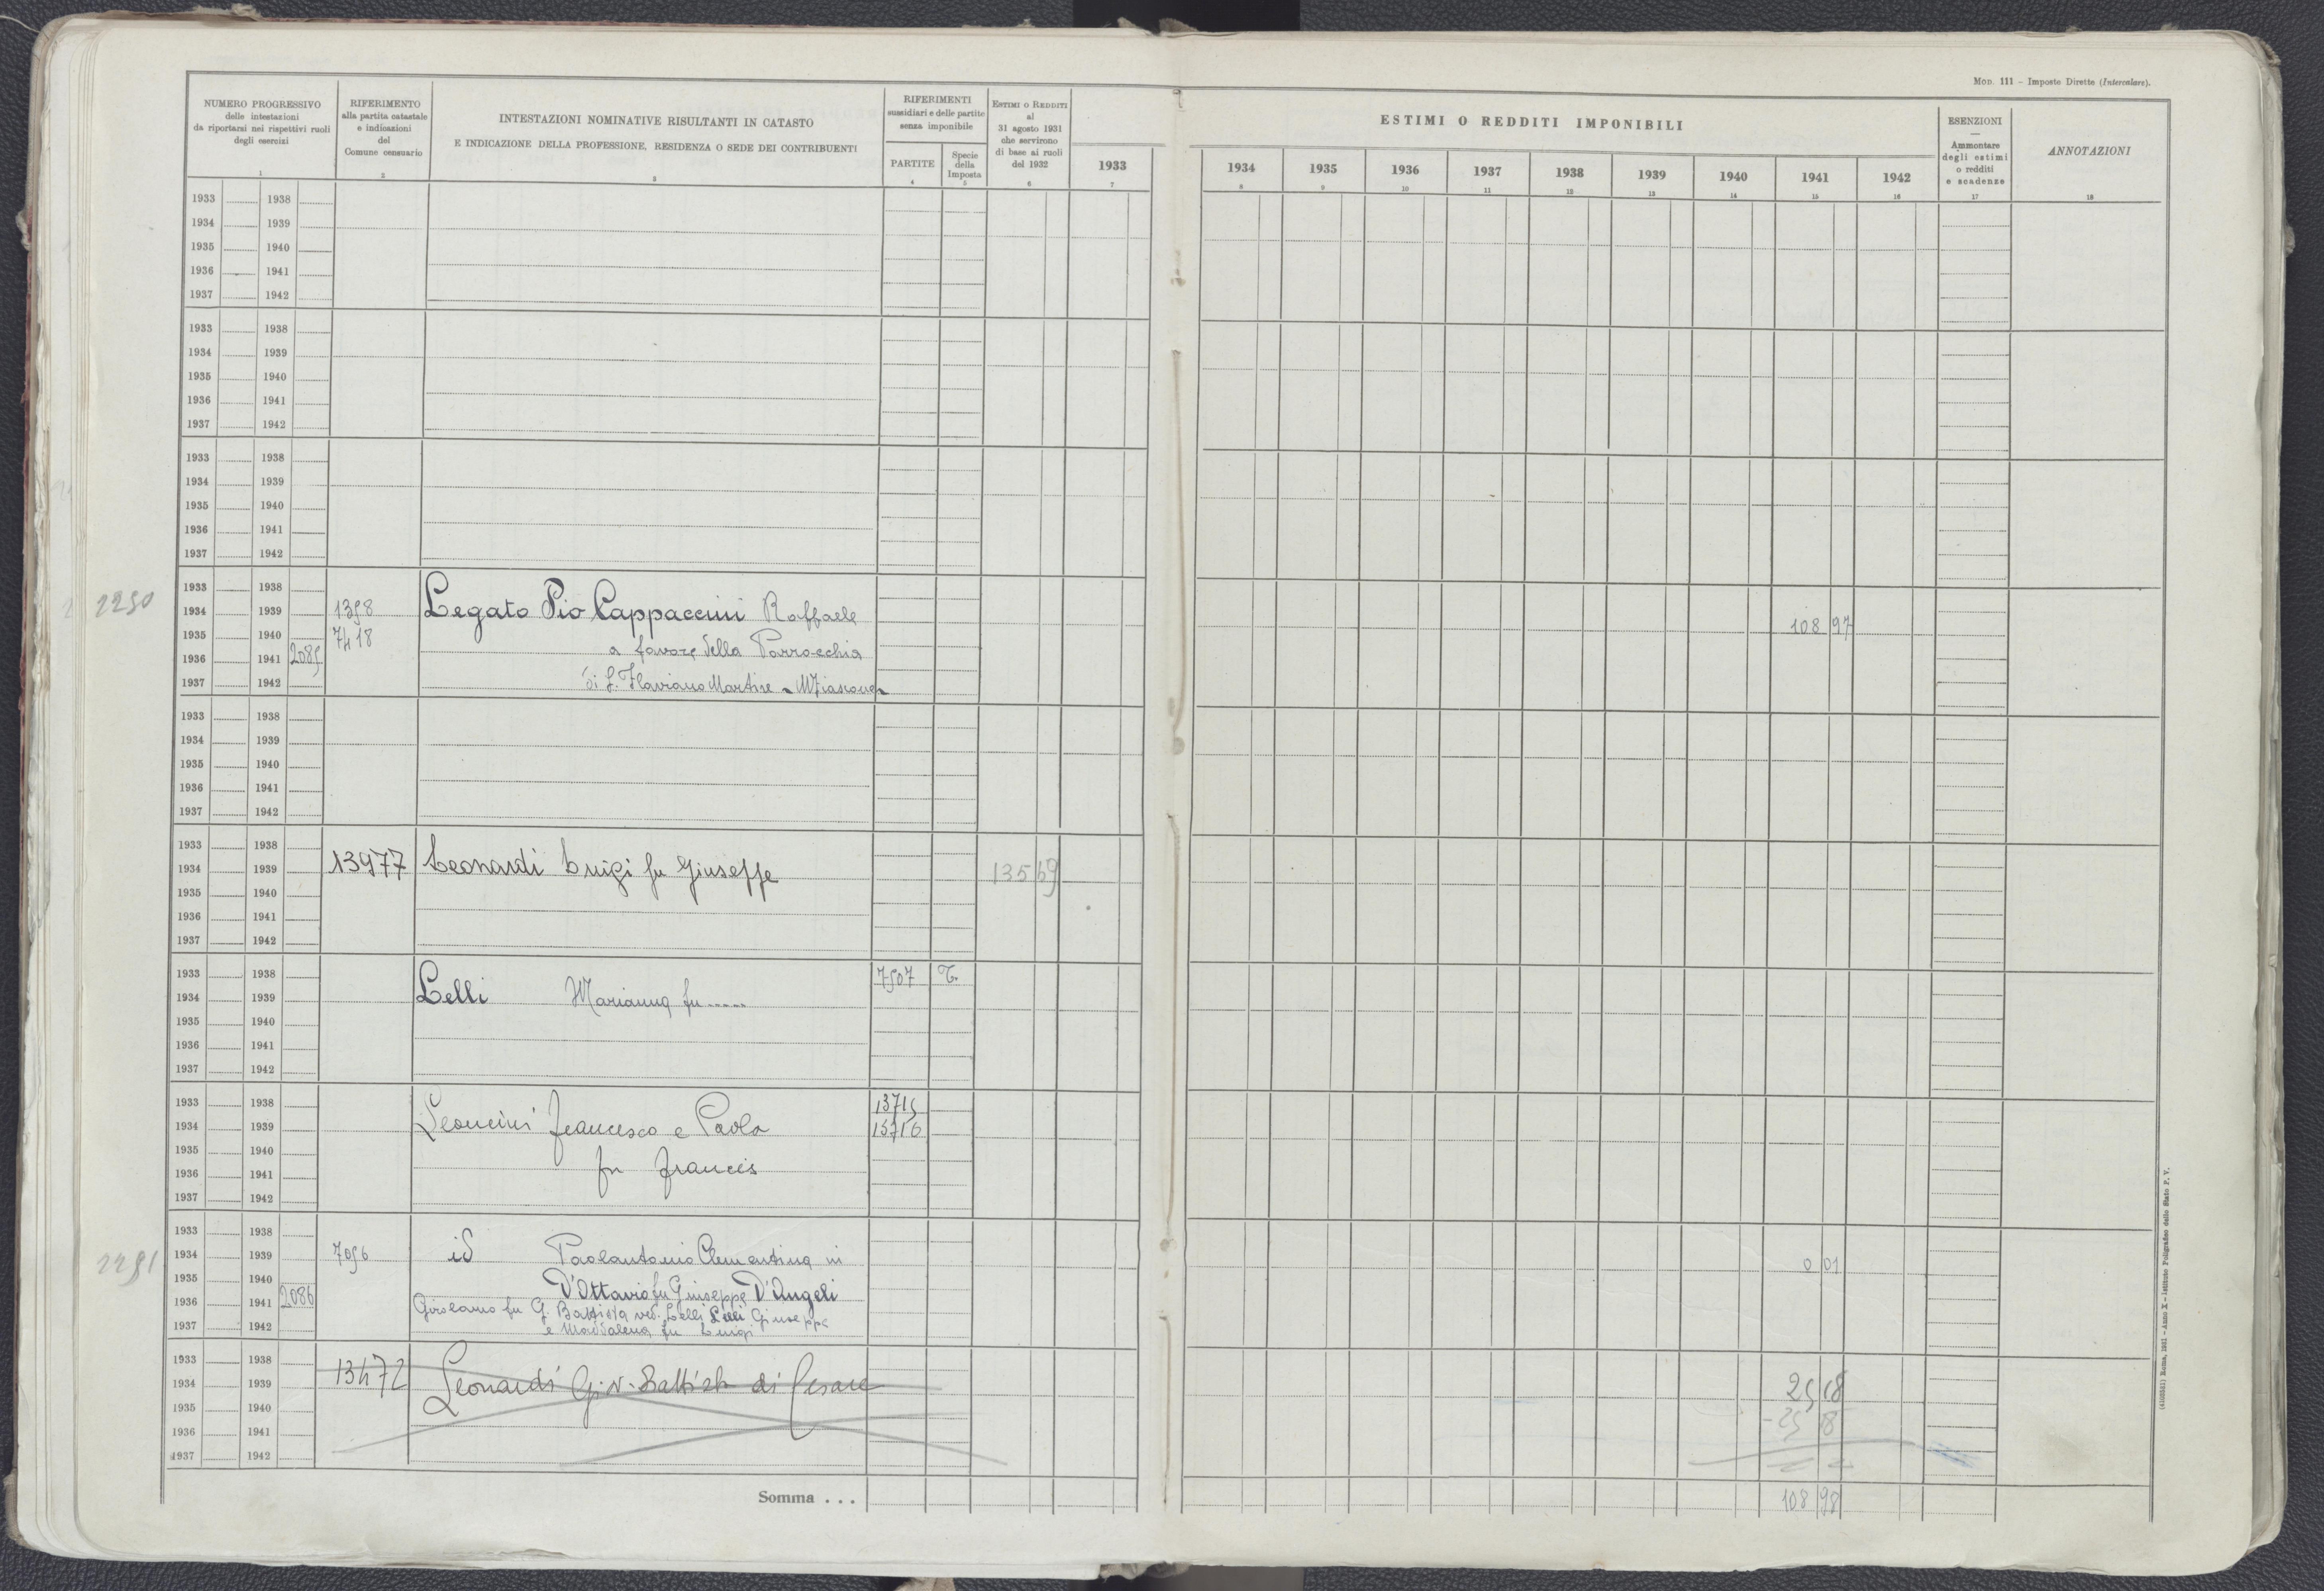 MOD. 111 – Imposte Dirette (Intercalare).
NUMERO PROGRESSIVO
delle intestazioni
da riportarsi nei rispettivi ruoli
degli esercizi
1
RIFERIMENTO
alla partita catastale
e indicazioni
del
Comune censuario
2
INTESTAZIONI NOMINATIVE RISULTANTI IN CATASTO
E INDICAZIONE DELLA PROFESSIONE, RESIDENZA O SEDE DEI CONTRIBUENTI
3
RIFERIMENTI
sussidiari e delle partite
senza imponibile
PARTITE
4
Specie
della
Imposta
5
ESTIMI O REDDITI
al
31 agosto 1931
che servirono
di base ai ruoli
del 1932
6
1933
7
ESTIMI O REDDITI IMPONIBILI
1934 1935 1936 1937 1938 1939 1940 1941 1942
8 9 10 11 12 13 14 15 16
ESENZIONI
—
Ammontare
degli estimi
o redditi
e scadenze
17
ANNOTAZIONI
18
1933 1938
1934 1939
1935 1940
1936 1941
1937 1942
1933 1938
1934 1939
1935 1940
1936 1941
1937 1942
1933 1938
1934 1939
1935 1940
1936 1941
1937 1942
1933 1938
2250 1934 1939 1358 Legato Pio Cappaccini Raffaele
1935 1940 7418 108 97
1936 1941 2085 a favore della Parrocchia
1937 1942 di S. Flaviano Martire
1933 1938
1934 1939
1935 1940
1936 1941
1937 1942
1933 1938
1934 1939 13977 Leonardi Luigi fu Giuseppe 135 69
1935 1940
1936 1941
1937 1942
1933 1938 7507 T.
1934 1939 Lelli Marianna fu .....
1935 1940
1936 1941
1937 1942
1933 1938 13715
1934 1939 Leoncini Francesco e Paolo 13716
1935 1940
1936 1941 fu Francis
1937 1942
1933 1938
2251 1934 1939 7056 id Paolantonio Clementina in 0 01
1935 1940 D'Ottavio fu Giuseppe D'Angeli
1936 1941 2086 Girolamo fu G. Battista ved. Lelli Lelli Giuseppe
1937 1942 e Maddalena fu Luigi
1933 1938 13472
1934 1939 Leonardi Giov. Battista di Cesare 25 18
1935 1940 -25 18
1936 1941
1937 1942
Somma . . . 108 98
(4100581) Roma, 1931 – Anno X – Istituto Poligrafico dello Stato P. V.